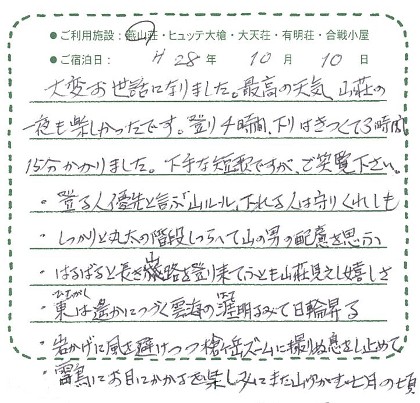 ●ご利用施設：燕山荘・ヒュッテ大槍・大天荘・有明荘・合戦小屋
●ご宿泊日： H 28年 10月 10日
大変お世話になりました。最高の天気、山荘の
一夜も楽しかったです。登り4時間、下りはきつくて3時間
15分かかりました。下手な短歌ですが、ご笑覧下さい。
・登る人優先と言ふ山ルール、下れる人は守りくれしも
・しっかりと丸太の階段しつらへて山の男の配慮を思ふ
・はるばると長き山路を登り来てふとも山荘見えし嬉しさ
・東は遥かにつづく雲海の涯明るみて日輪昇る
ひむがし
はて
・岩かげに風を避けつつ槍ヶ岳ズームに撮りぬ息を止めて
・雷鳥にお目にかかるを楽しみにまた山ゆかむ七月の頃